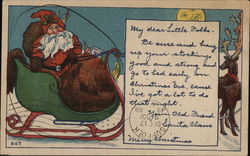 My dear Little Folks.
Be sure and hang
up your stockings
good and strong and
go to bed early on
Christmas Eve, cause
I've got a lot to do
that night.
Your Old Friend
Santa Claus
Merry Christmas
847